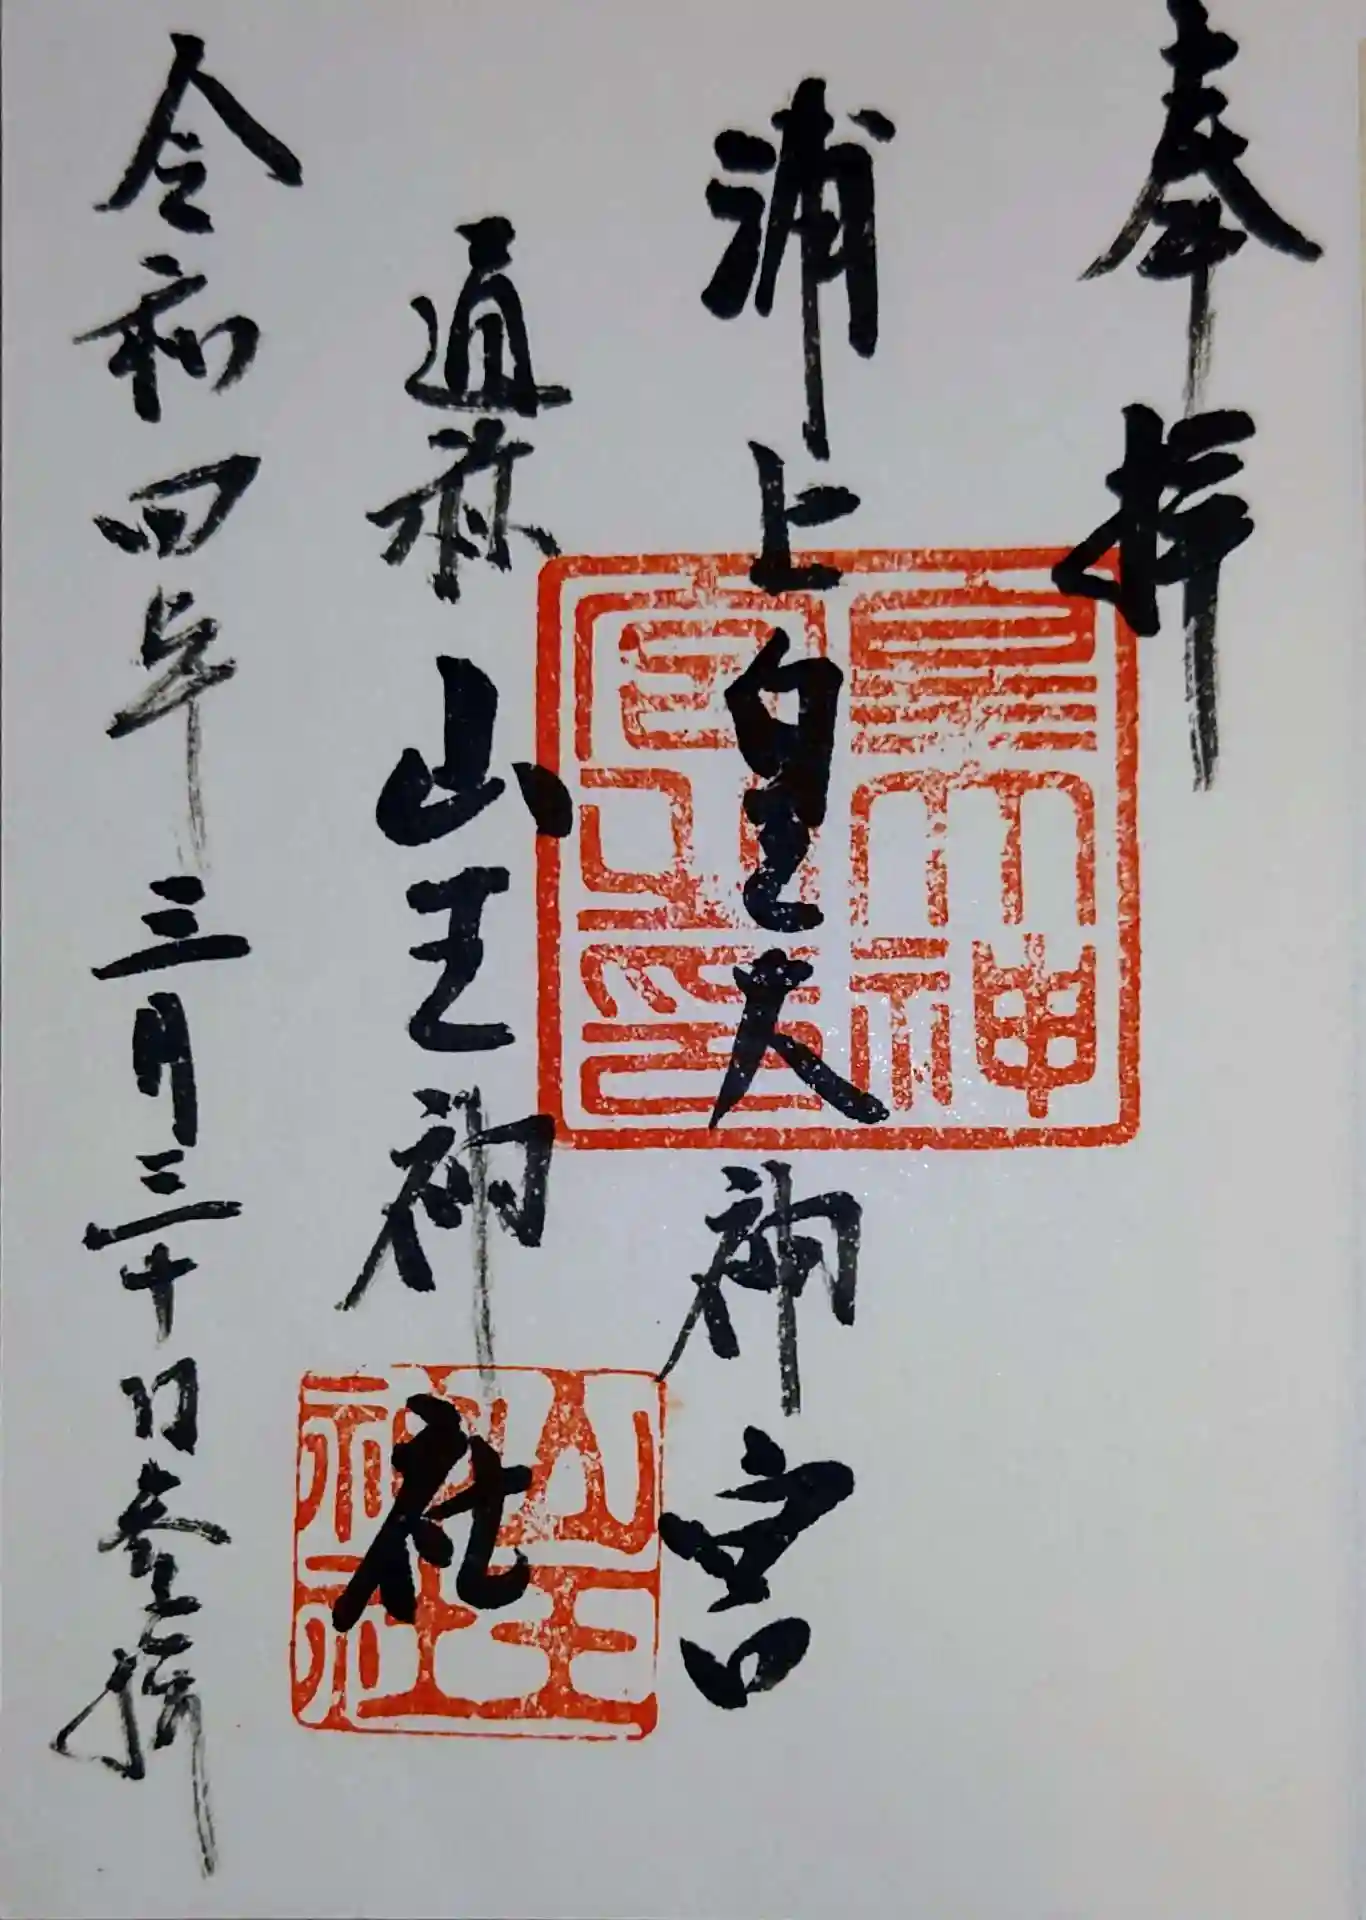 奉拝
浦上皇大神宮
皇大神
宮之印
通称山王神社
山王
神社
令和四年三月三十日参拝